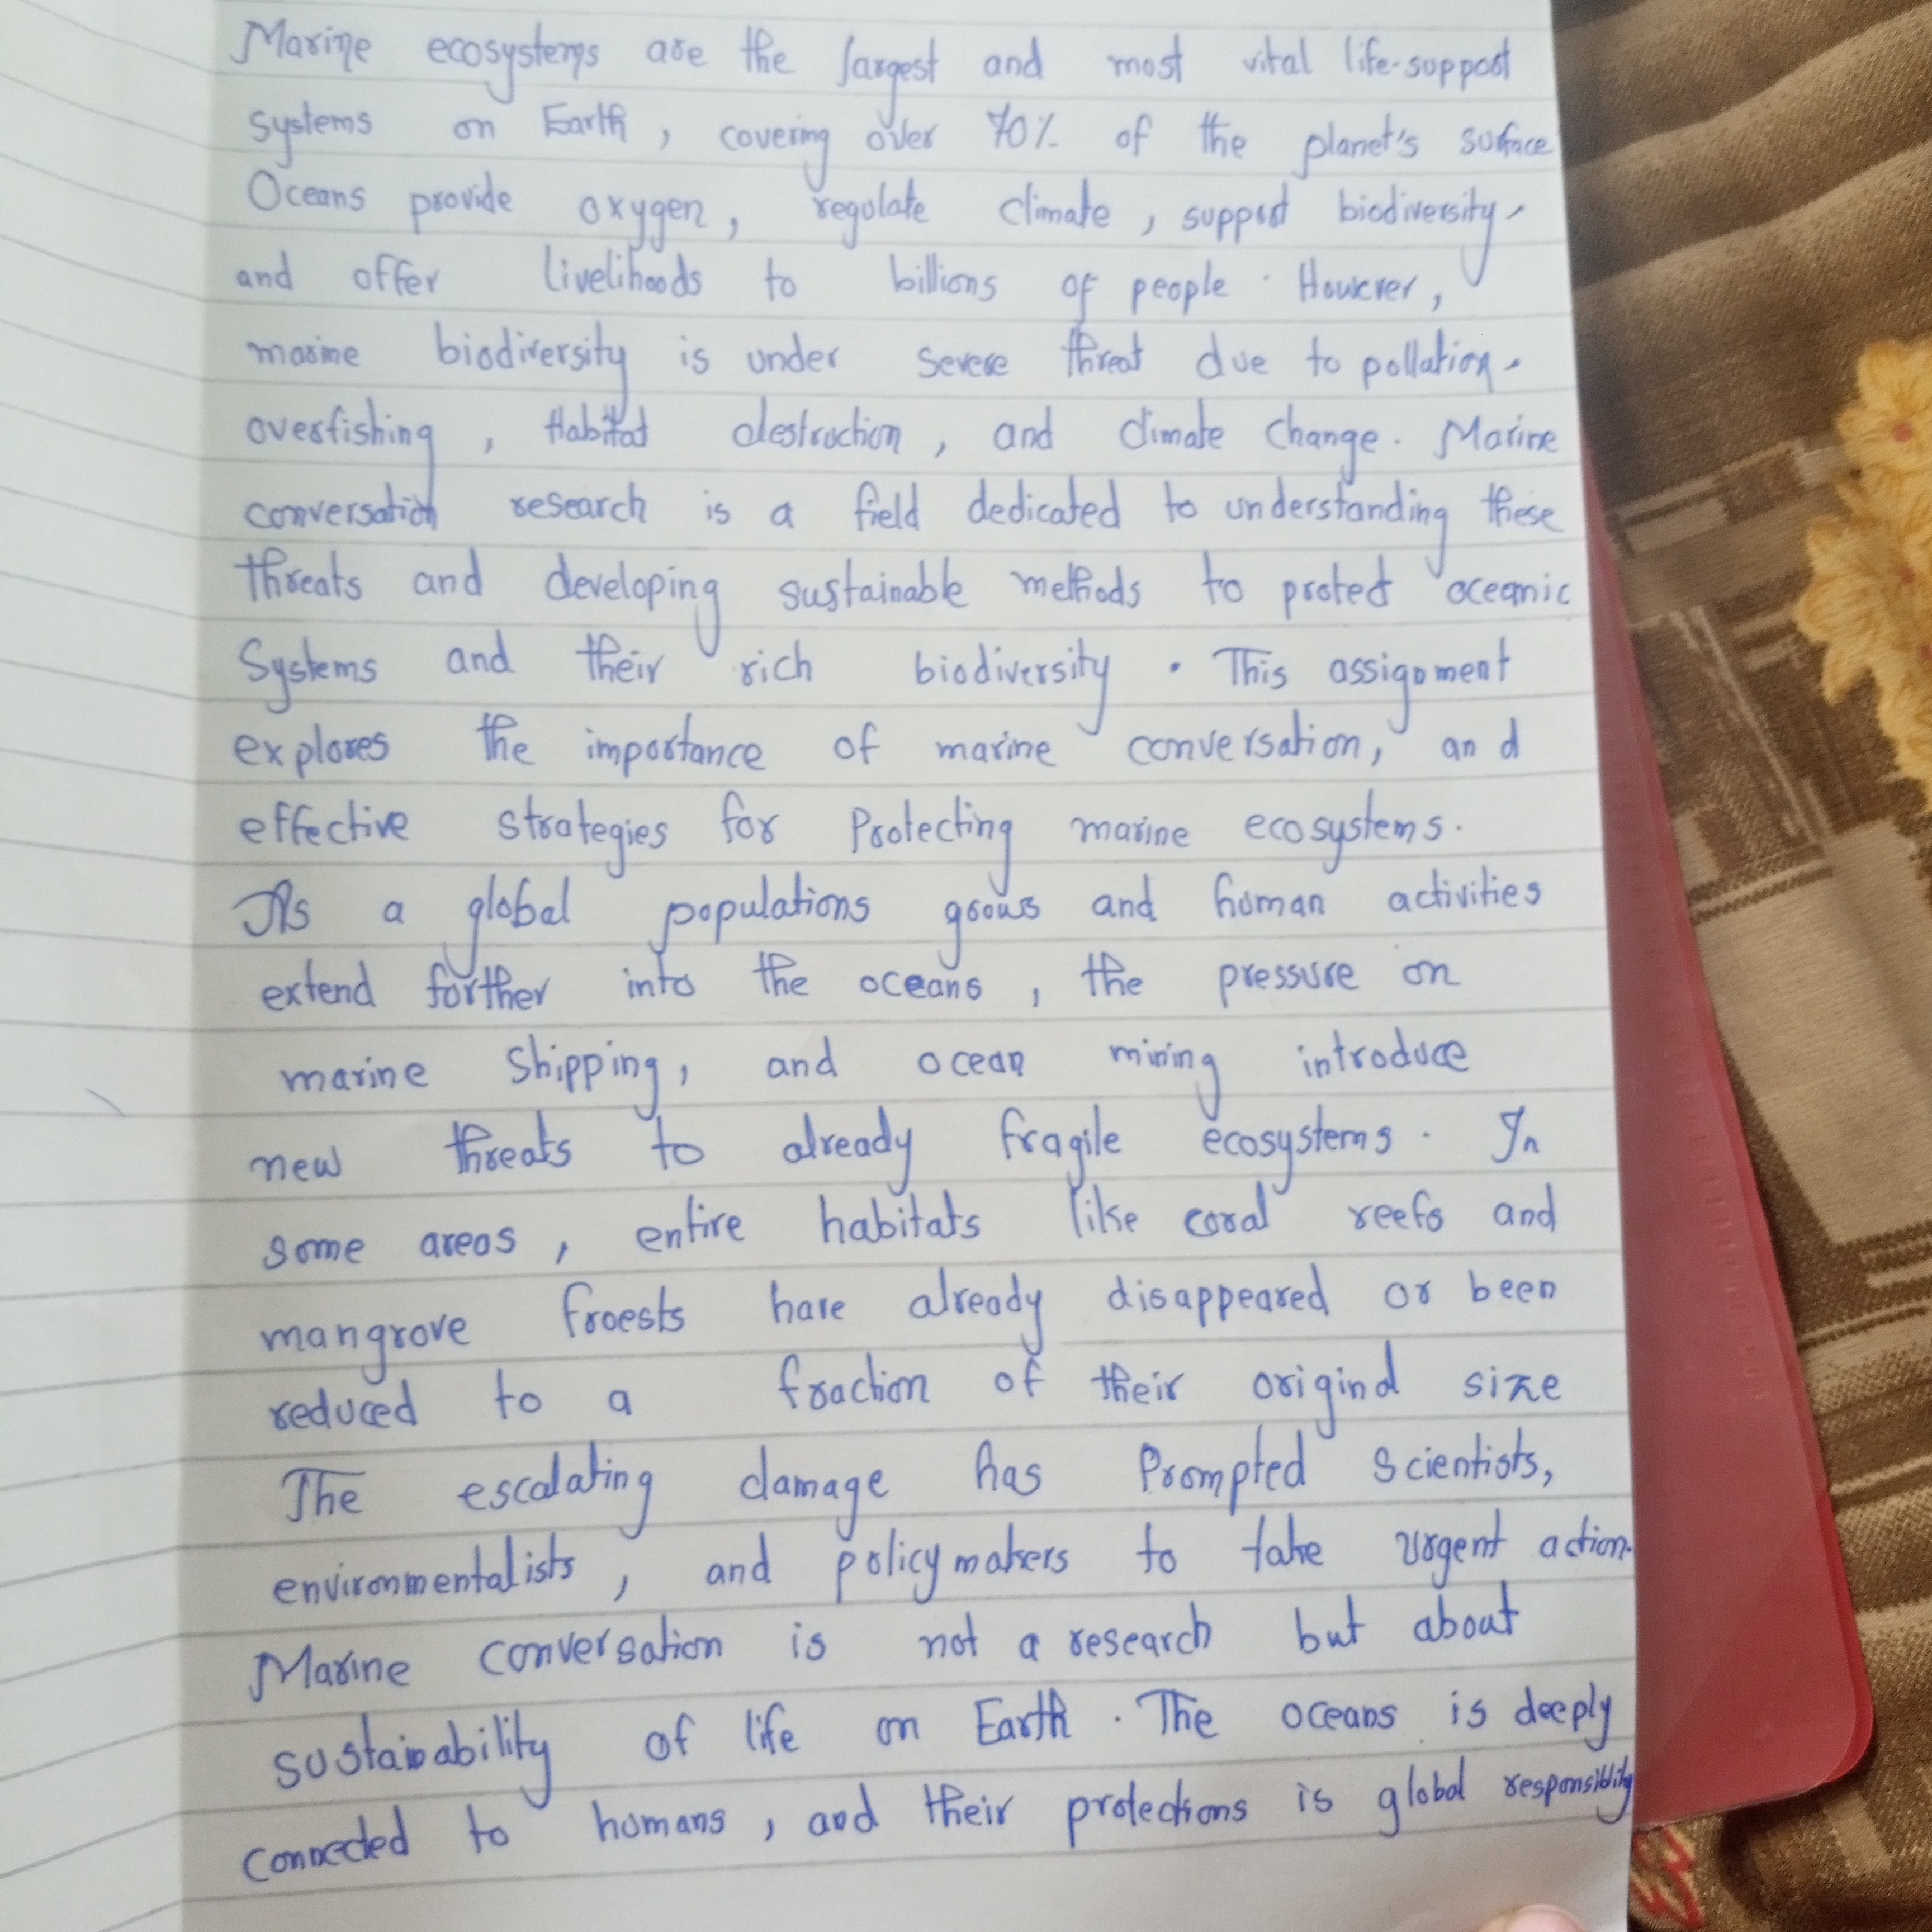 Marine ecosystems are the largest and most vital life-support
systems on Earth, covering over 70% of the planet's surface
Oceans provide oxygen, regulate climate, support biodiversity,
and offer livelihoods to billions of people. However,
marine biodiversity is under severe threat due to pollation,
overfishing, Habitat destruction, and climate change. Marine
conversation research is a field dedicated to understanding these
threats and developing sustainable methods to protect oceanic
Systems and their rich biodiversity. This assignment
explores the importance of marine conversation, and
effective strategies for Protecting marine ecosystems.
As a global populations grows and human activities
extend further into the oceans, the pressure on
marine Shipping, and ocean mining introduce
new threats to already fragile ecosystems. In
some areas, entire habitats like coral reefs and
mangrove froests have already disappeared or been
reduced to a fraction of their original size
The escalating damage has Prompted Scientists,
environmentalists, and policymakers to take urgent action.
Marine conversation is not a research but about
sustainability of life on Earth. The oceans is deeply
connected to humans, and their protections is global responsibility